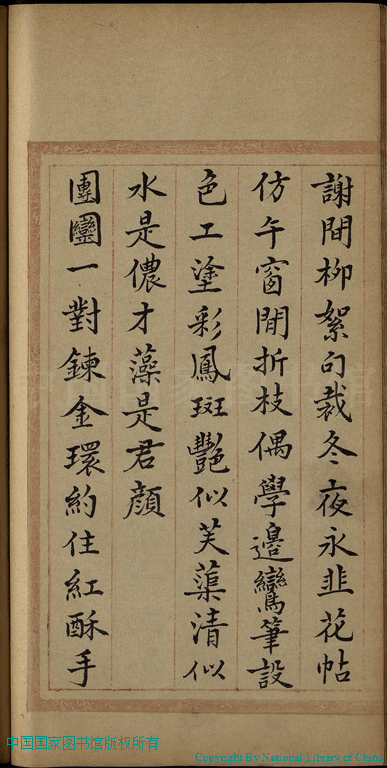 謝閒柳絮句裁冬夜永韭花帖
仿午窗閒折枝偶學邊鸞筆設
色工塗彩鳳斑艷似芙蕖清似
水是儂才藻是君顔
團圞一對鍊金環約住紅酥手
中国国家图书馆版权所有
Copyright By National Library of China